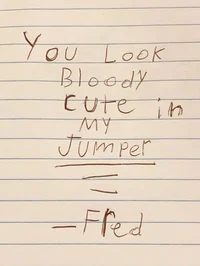 You Look
Bloody
cute in
My
Jumper
— Fred